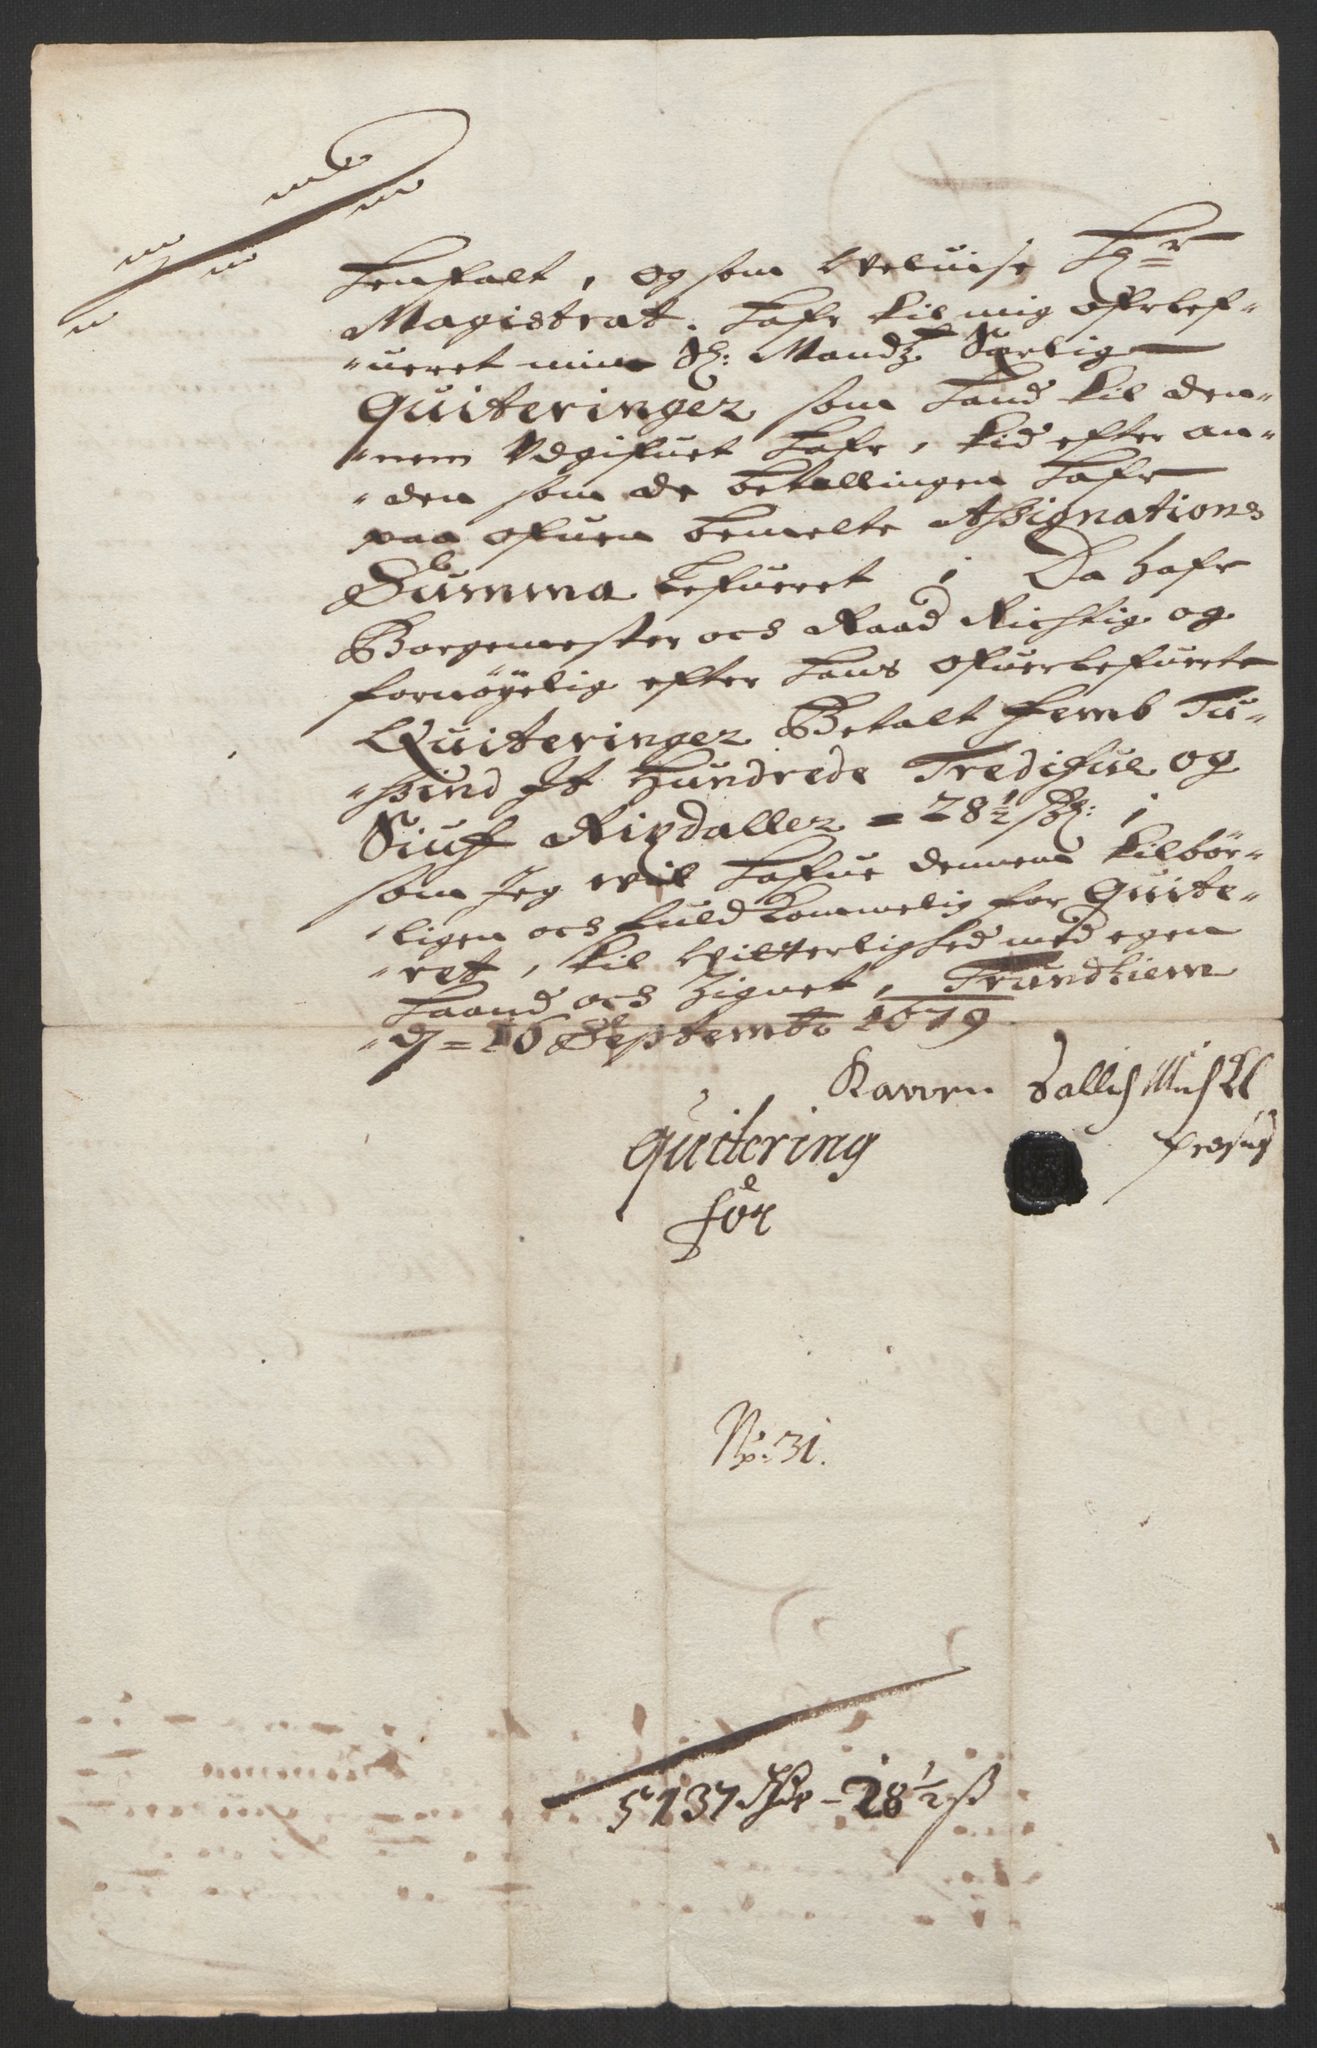 henfalt, og som Weluise H:r
Magistrat. hafr til mig ofrlef-
-ueret min Sl: Mandz Særlig
Quiteringer som hand til den-
-nem Udgifuet hafr, tid efter an-
-den som de betallingen hafr
paa ofuen bemelte Assignations
Summa lefueret; Da hafr
Borgemester och Raad Richtig og
fornøyelig efter hans ofuerlefuerte
Quiteringer Betalt femb Tu-
-ssind Et Hundrede Tredifue og
Siuf Rixdaller = 28½ ß:;
som Jeg wil hafue dennem tilbör-
-ligen och fuldkommelig for Quite-
-ret, til Vitterlighed med egen
haand och Zignet, Trundhiem
-d = 16 Septembr 1679
Karren Sallig
Quitering
för
No: 31.
5137 Rdr - 28½ ß